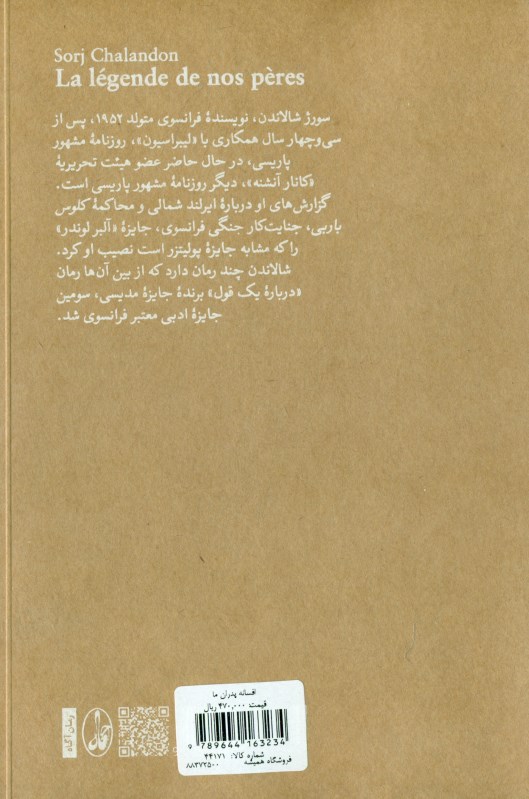 Sorj Chalandon
La légende de nos pères
سورژ شالاندن، نویسندهٔ فرانسوی متولد ۱۹۵۲، پس از
سی‌وچهار سال همکاری با «لیبراسیون»، روزنامهٔ مشهور
پاریسی، در حال حاضر عضو هیئت تحریریهٔ
«کانار آنشنه»، دیگر روزنامهٔ مشهور پاریسی است.
گزارش‌های او دربارهٔ ایرلند شمالی و محاکمهٔ کلوس
باربی، جنایت‌کار جنگی فرانسوی، جایزهٔ «آلبر لوندر»
را که مشابه جایزهٔ پولیتزر است نصیب او کرد.
شالاندن چند رمان دارد که از بین آن‌ها رمان
«دربارهٔ یک قول» برندهٔ جایزهٔ مدیسی، سومین
جایزهٔ ادبی معتبر فرانسوی شد.
رمان آگاه
افسانه پدران ما
قیمت: ۴۷۰,۰۰۰ ریال
9 789644 163234
شماره کالا: ۴۴۱۷۱
فروشگاه همیشه ۸۸۳۷۲۵۰۰